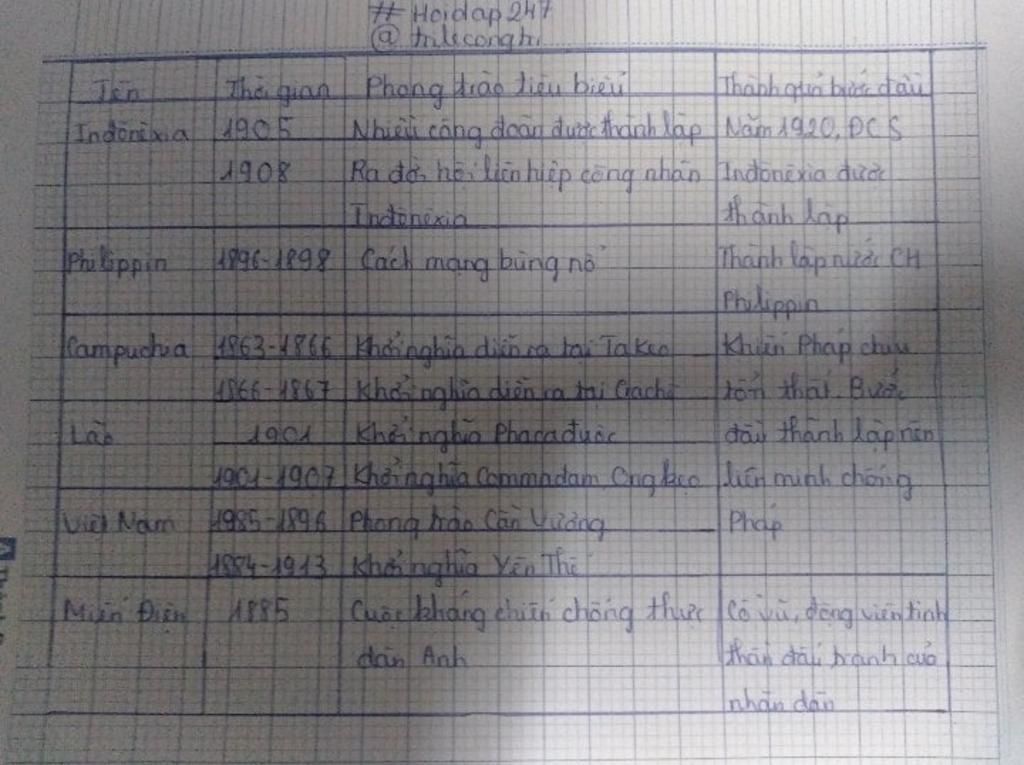 # Hoidap247
@ trilecongtri
Tên Thời gian Phong trào tiêu biểu Thành quả bước đầu
Inđônêxia 1905 Nhiều công đoàn được thành lập Năm 1920, ĐCS
1908 Ra đời hội liên hiệp công nhân Inđônêxia được
Inđônêxia thành lập
Philippin 1896-1898 Cách mạng bùng nổ Thành lập nước CH
Philippin
Campuchia 1863-1866 Khởi nghĩa diễn ra tại Takeo Khiến Pháp chịu
1866-1867 Khởi nghĩa diễn ra tại Crachê tổn thất. Bước
Lào 1901 Khởi nghĩa Phacađuôc đầu thành lập nên
1901-1907 Khởi nghĩa Commađam, Ong kẹo liên minh chống
Việt Nam 1985-1896 Phong trào Cần Vương Pháp
1884-1913 Khởi nghĩa Yên Thế
Miến Điện 1885 Cuộc kháng chiến chống thực Cổ vũ, động viên tinh
dân Anh thần đấu tranh của
nhân dân